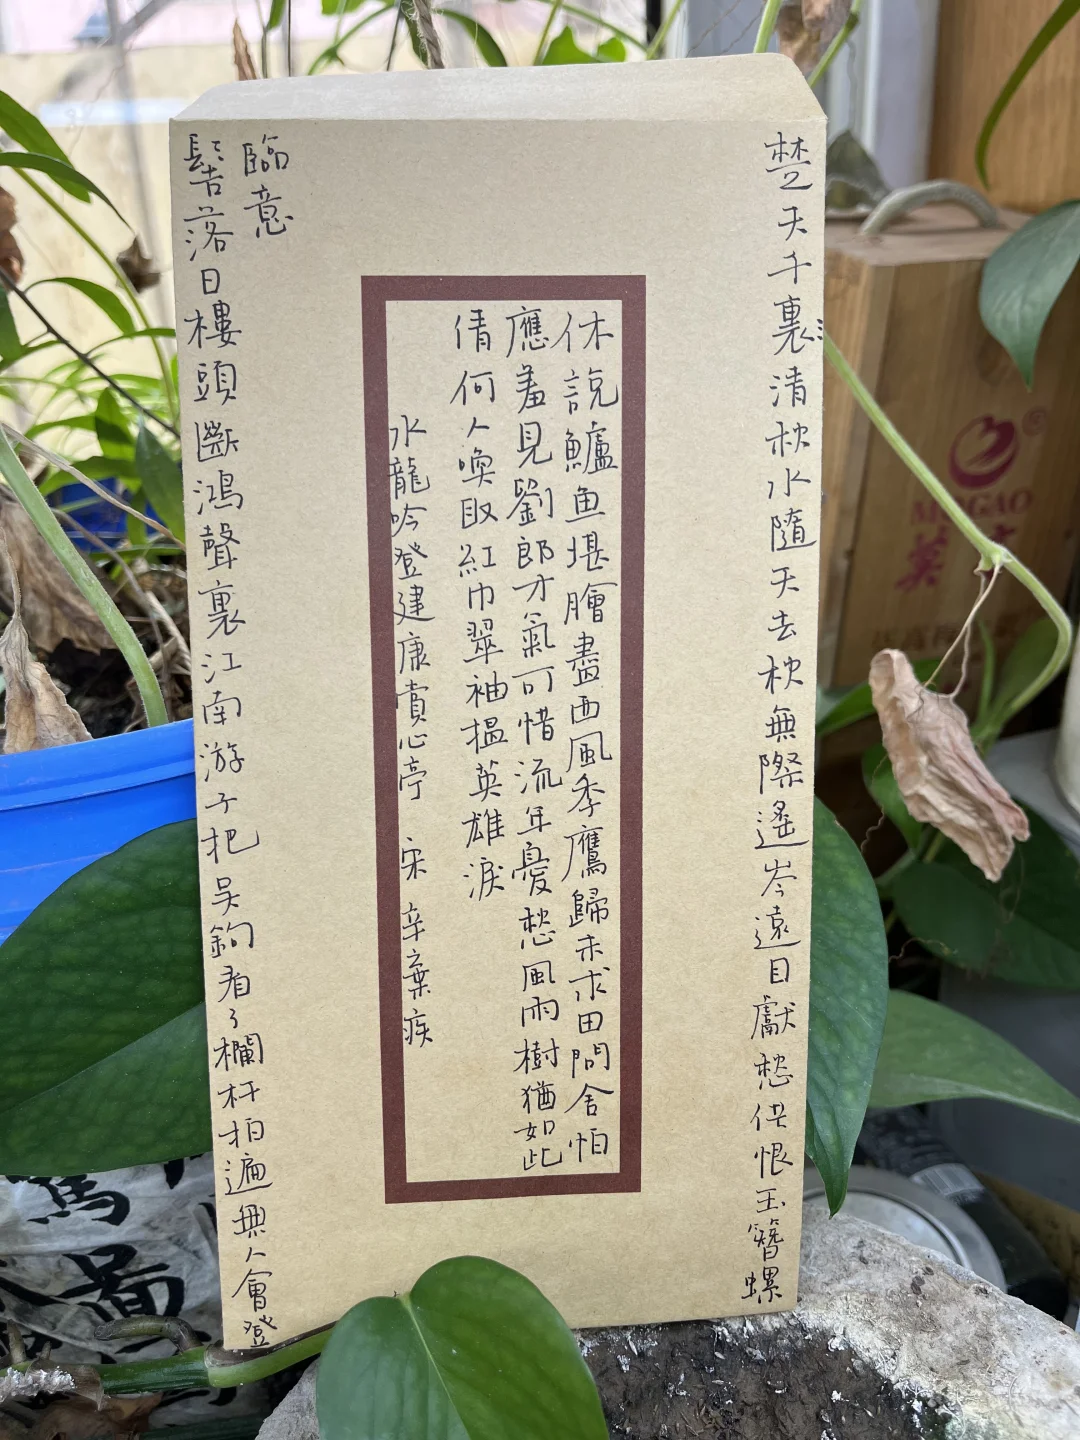 楚天千裏清秋水隨天去秋無際遙岑遠目獻愁供恨玉簪螺
髻落日樓頭斷鴻聲裏江南游子把吳鉤看了欄杆拍遍無人會登
臨意
休說鱸魚堪膾盡西風季鷹歸未求田問舍怕
應羞見劉郎才氣可惜流年憂愁風雨樹猶如此
倩何人喚取紅巾翠袖揾英雄淚
水龍吟登建康賞心亭 宋 辛棄疾
MINGAO